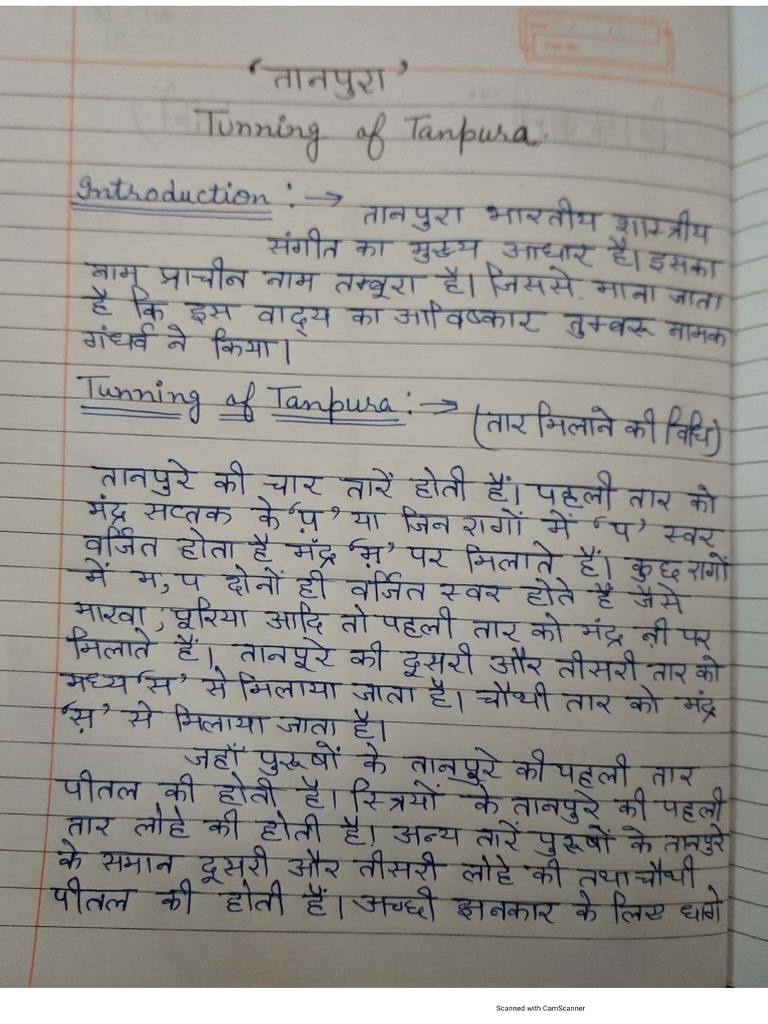 'तानपुरा'
Tunning of Tanpura.
Introduction :→ तानपुरा भारतीय शास्त्रीय
संगीत का मुख्य आधार है। इसका
नाम प्राचीन नाम तम्बूरा है। जिससे माना जाता
है कि इस वाद्य का आविष्कार तुम्बरू नामक
गंधर्व ने किया।
Tunning of Tanpura :→ (तार मिलाने की विधि)
तानपुरे की चार तारें होती हैं। पहली तार को
मंद्र सप्तक के 'प़' या जिन रागों में 'प' स्वर
वर्जित होता है मंद्र 'म़' पर मिलाते हैं। कुछ रागों
में म, प दोनों ही वर्जित स्वर होते हैं जैसे
मारवा, पूरिया आदि तो पहली तार को मंद्र ऩी पर
मिलाते हैं। तानपूरे की दूसरी और तीसरी तार को
मध्य 'स' से मिलाया जाता है। चौथी तार को मंद्र
'स़' से मिलाया जाता है।
जहाँ पुरूषों के तानपुरे की पहली तार
पीतल की होती है। स्त्रियों के तानपुरे की पहली
तार लोहे की होती है। अन्य तारें पुरूषों के तानपुरे
के समान दूसरी और तीसरी लोहे की तथा चौथी
पीतल की होती हैं। अच्छी झनकार के लिए धागे
Scanned with CamScanner